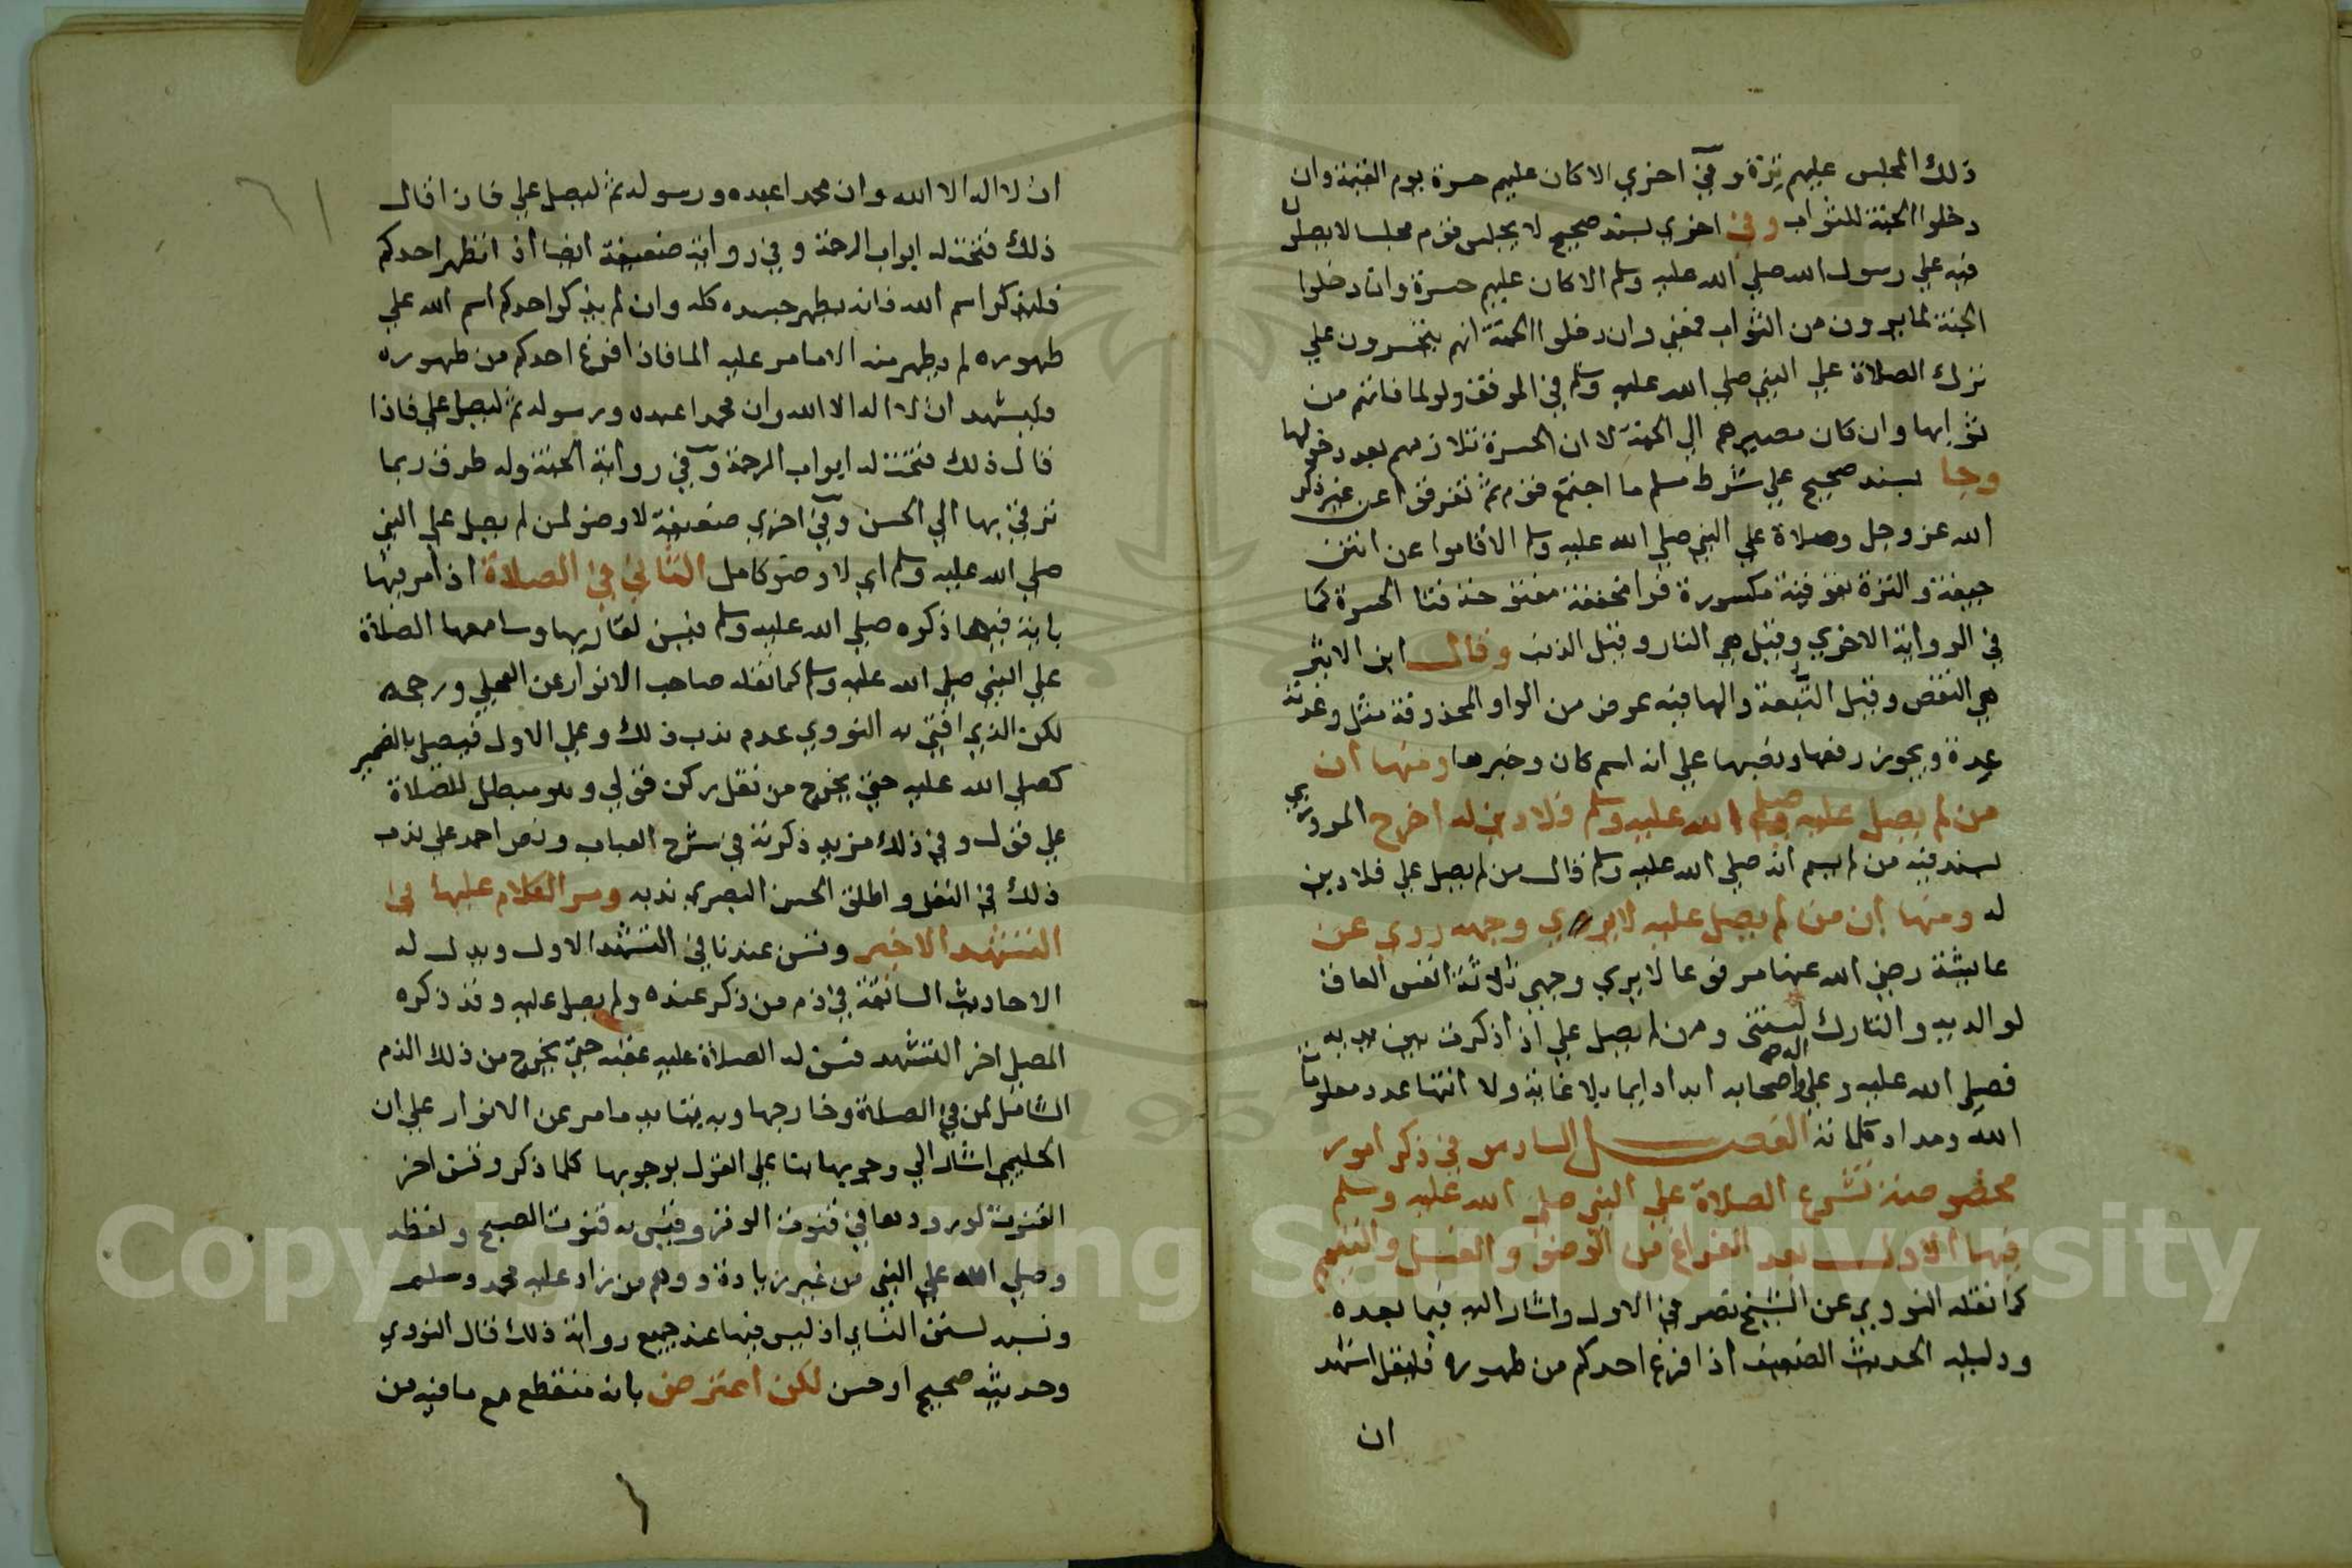 ذلك المجلس عليهم ترة وفي اخري الا كان عليهم حسرة يوم القيمة وان
دخلوا الجنة للثواب وفي اخري بسند صحيح لا يجلس قوم مجلسا لا يصلوا
فيه علي رسول الله صلي الله عليه وسلم الا كان عليهم حسرة وان دخلوا
الجنة لما يرون من الثواب فمعني وان دخلوا الجنة انهم يتحسرون علي
ترك الصلاة علي النبي صلي الله عليه وسلم في الموقف ولو لما فاتهم من
ثوابها وان كان مصيرهم الي الجنة لا ان الحسرة تلازمهم بعد دخولها
وجا بسند صحيح علي شرط مسلم ما اجتمع قوم ثم تفرقوا عن غير ذكر
الله عز وجل وصلاة علي النبي صلي الله عليه وسلم الا قاموا عن انتن
جيفة والترة بفوقية مكسورة فرا مخففة مفتوحة فتا الحسرة كما
في الرواية الاخري وقيل هي النار وقيل الذنب وقال ابن الاثير
هي النقص وقيل التبعة والها فيه عوض من الواو المحذوفة مثل وعدته
عدة ويجوز رفعها ونصبها علي انه اسم كان وخبرها ومنها ان
من لم يصل عليه صلي الله عليه وسلم فلا دين له اخرج المروزي
بسند فيه من لم يسم انه صلي الله عليه وسلم قال من لم يصل علي فلا دين
له ومنها ان من لم يصل عليه لا يري وجهه روي عن
عايشة رضي الله عنها مرفوعا لا يري وجهي ثلاثة انفس العاق
لوالديه والتارك لسنتي ومن لم يصل علي اذا ذكرت بين يديه
فصلي الله عليه وعلي اله واصحابه ابدا دايما بلا غاية ولا انتها عدد معلومات
الله ومداد كلماته الفصل السادس في ذكر امور
مخصوصة تشرع الصلاة علي النبي صلي الله عليه وسلم
فيها الاول بعد الفراغ من الوضو والغسل والتيمم
كما نقله النووي عن الشيخ نصر في الاول واشار اليه فيما بعده
ودليله الحديث الضعيف اذا فرغ احدكم من طهوره فليقل اشهد
ان
ان لا اله الا الله وان محمدا عبده ورسوله ثم ليصل علي فاذا قال
ذلك فتحت له ابواب الرحمة وفي رواية ضعيفة ايضا اذا تطهر احدكم
فليذكر اسم الله فانه يطهر جسده كله وان لم يذكر احدكم اسم الله علي
طهوره لم يطهر منه الا ما مر عليه الما فاذا فرغ احدكم من طهوره
فليشهد ان لا اله الا الله وان محمدا عبده ورسوله ثم ليصل علي فاذا
قال ذلك فتحت له ابواب الرحمة وفي رواية الجنة وله طرق ربما
ترقي بها الي الحسن وفي اخري ضعيفة لا وضو لمن لم يصل علي النبي
صلي الله عليه وسلم اي لا وضو كامل الثاني في الصلاة اذا مر فيها
باية فيها ذكره صلي الله عليه وسلم فيسن لقاريها وسامعها الصلاة
علي النبي صلي الله عليه وسلم كما نقله صاحب الانوار عن العجلي ورجحه
لكن الذي افتي به النووي عدم ندب ذلك وعلي الاول فيصلي بالضمير
كصلي الله عليه حتي يخرج من نقل ركن قولي وهو مبطل للصلاة
علي قول وفي ذلك مزيد ذكرته في شرح العباب ونص احمد علي ندب
ذلك في النفل واطلق الحسن البصري ندبه ومر الكلام عليها في
التشهد الاخير وتسن عندنا في التشهد الاول ويدل له
الاحاديث السابقة في ذم من ذكر عنده ولم يصل عليه وقد ذكره
المصلي اخر التشهد فسن له الصلاة عليه عقبه حتي يخرج من ذلك الذم
الشامل لمن في الصلاة وخارجها وبه يتايد ما مر عن الانوار علي ان
الحليمي اشار الي وجوبها بنا علي القول بوجوبها كلما ذكر وتسن اخر
القنوت لورودها في قنوت الوتر وقيس به قنوت الصبح ولفظه
وصلي الله علي النبي من غير زيادة ووهم من زاد عليه محمد وسلم
ونسبه لسنن النساي اذ ليس فيها عند جميع رواته ذلك قال النووي
وحديثه صحيح او حسن لكن اعترض بانه منقطع مع ما فيه من
Copyright © King Saud University
1957